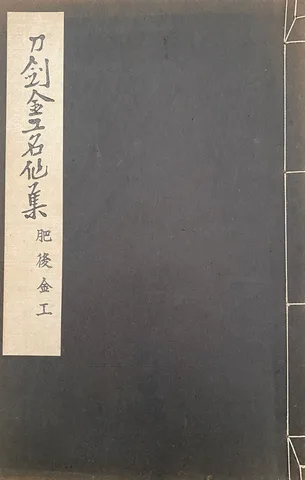 刀剣金工名作集
肥後金工